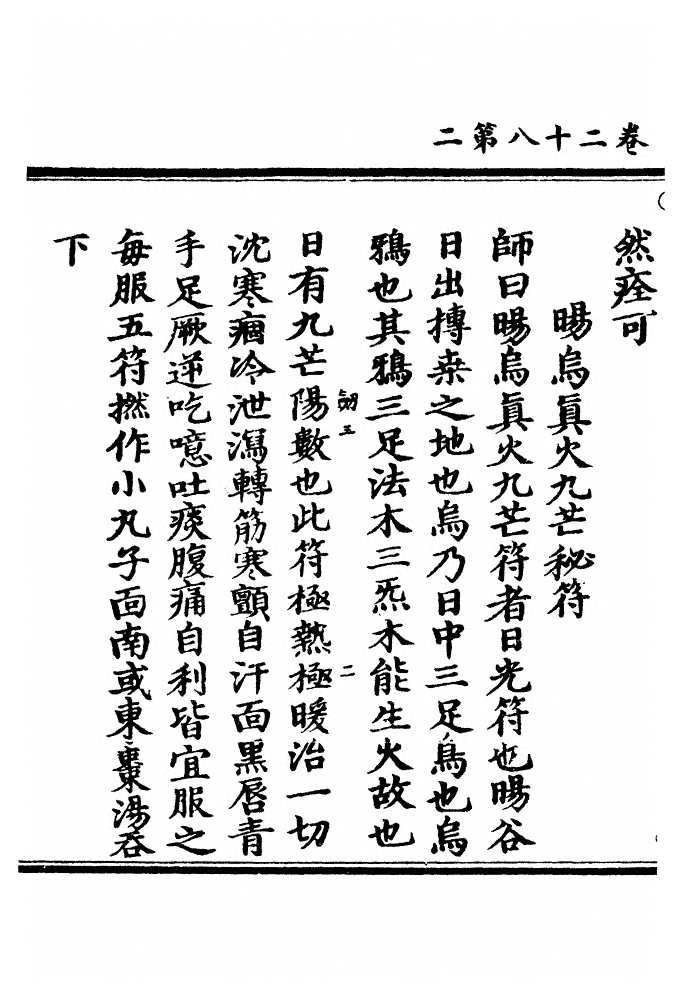 卷二十八第二
然痊可
暘烏眞火九芒秘符
師曰暘烏眞火九芒符者日光符也暘谷
日出摶桒之地也烏乃日中三足鳥也烏
鴉也其鴉三足法木三炁木能生火故也
日有九芒陽數也此符極熱極暖治一切
沈寒痼冷泄瀉轉筋寒顫自汗面黑唇青
手足厥逆吃噫吐痰腹痛自利皆宜服之
每服五符撚作小丸子面南或東棗湯吞
下
二